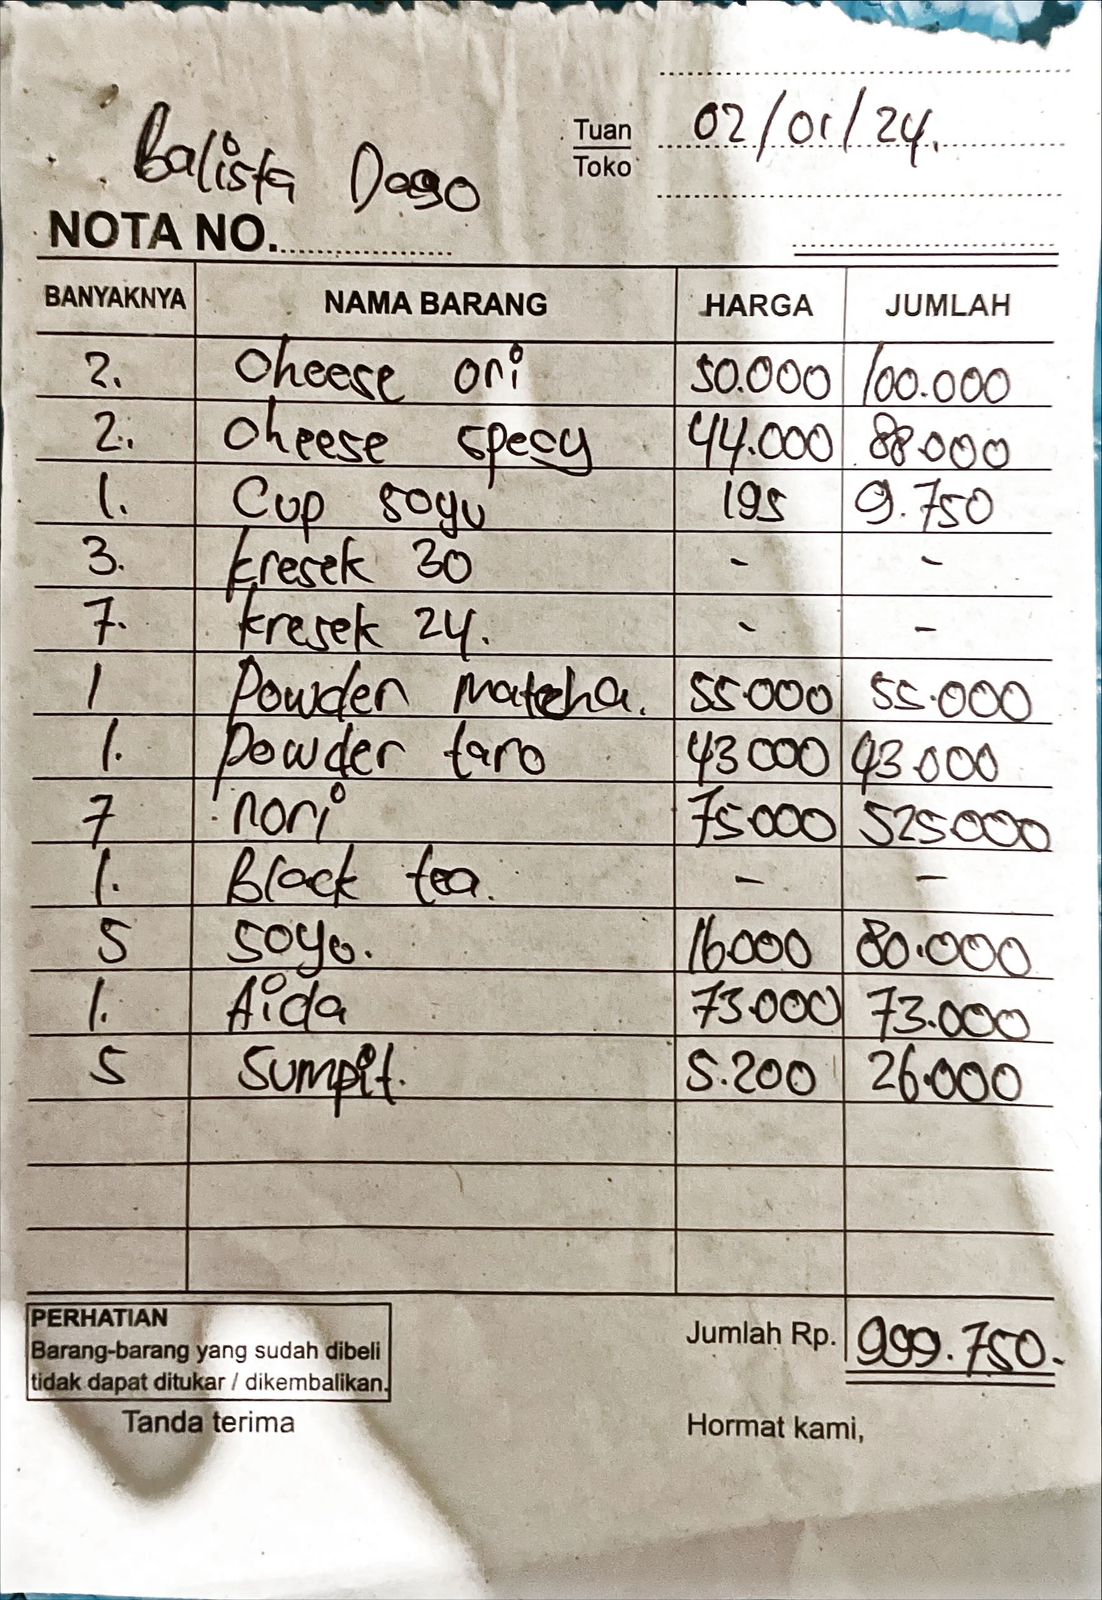 Balista Dago
Tuan
Toko
02/01/24.
NOTA NO.
BANYAKNYA NAMA BARANG HARGA JUMLAH
2. Cheese ori 50.000 100.000
2. Cheese specy 44.000 88.000
1. Cup soyu 195 9.750
3. kresek 30 - -
7. kresek 24. - -
1 Powder matcha. 55.000 55.000
1. Powder taro 43000 43.000
7 nori 75000 525000
1. Black tea. - -
5 soyu. 16000 80.000
1. Aida 73.000 73.000
5 Sumpit. 5.200 26.000
PERHATIAN
Barang-barang yang sudah dibeli
tidak dapat ditukar / dikembalikan.
Jumlah Rp. 999.750.
Tanda terima
Hormat kami,